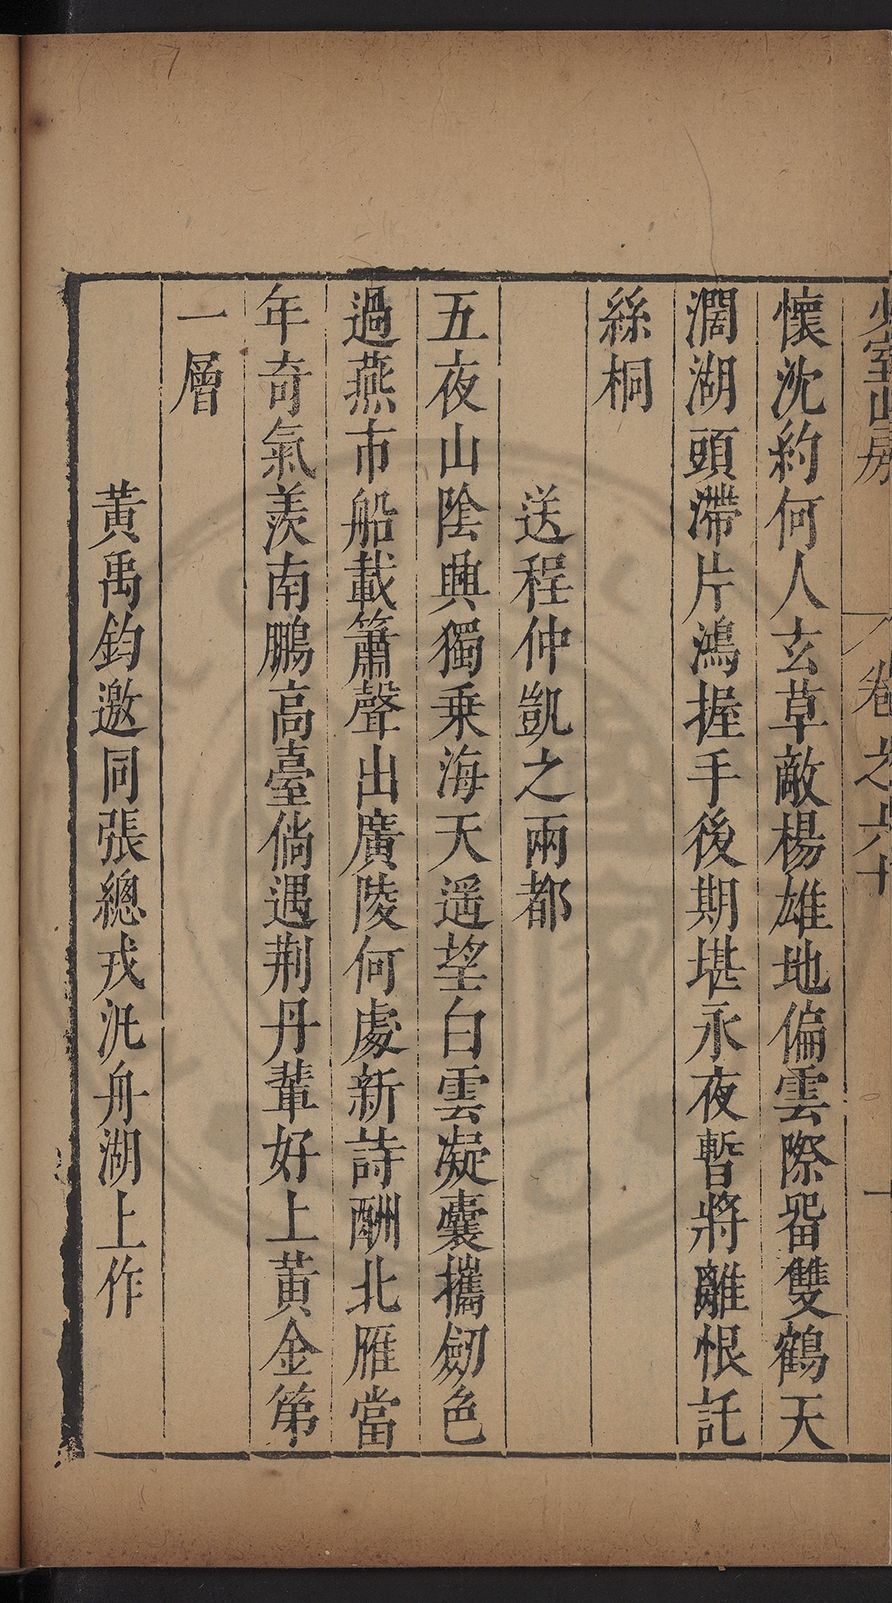 少室山房 卷之六十 十
懷沈約何人玄草敵楊雄地偏雲際畱雙鶴天
濶湖頭滯片鴻握手後期堪永夜暫將離恨託
絲桐
送程仲凱之兩都
五夜山陰興獨乗海天遥望白雲凝囊攜劒色
過燕市船載簫聲出廣陵何處新詩酬北雁當
年奇氣羨南鵬高臺倘遇荆丹輩好上黃金第
一層
黃禹鈞邀同張總戎汎舟湖上作